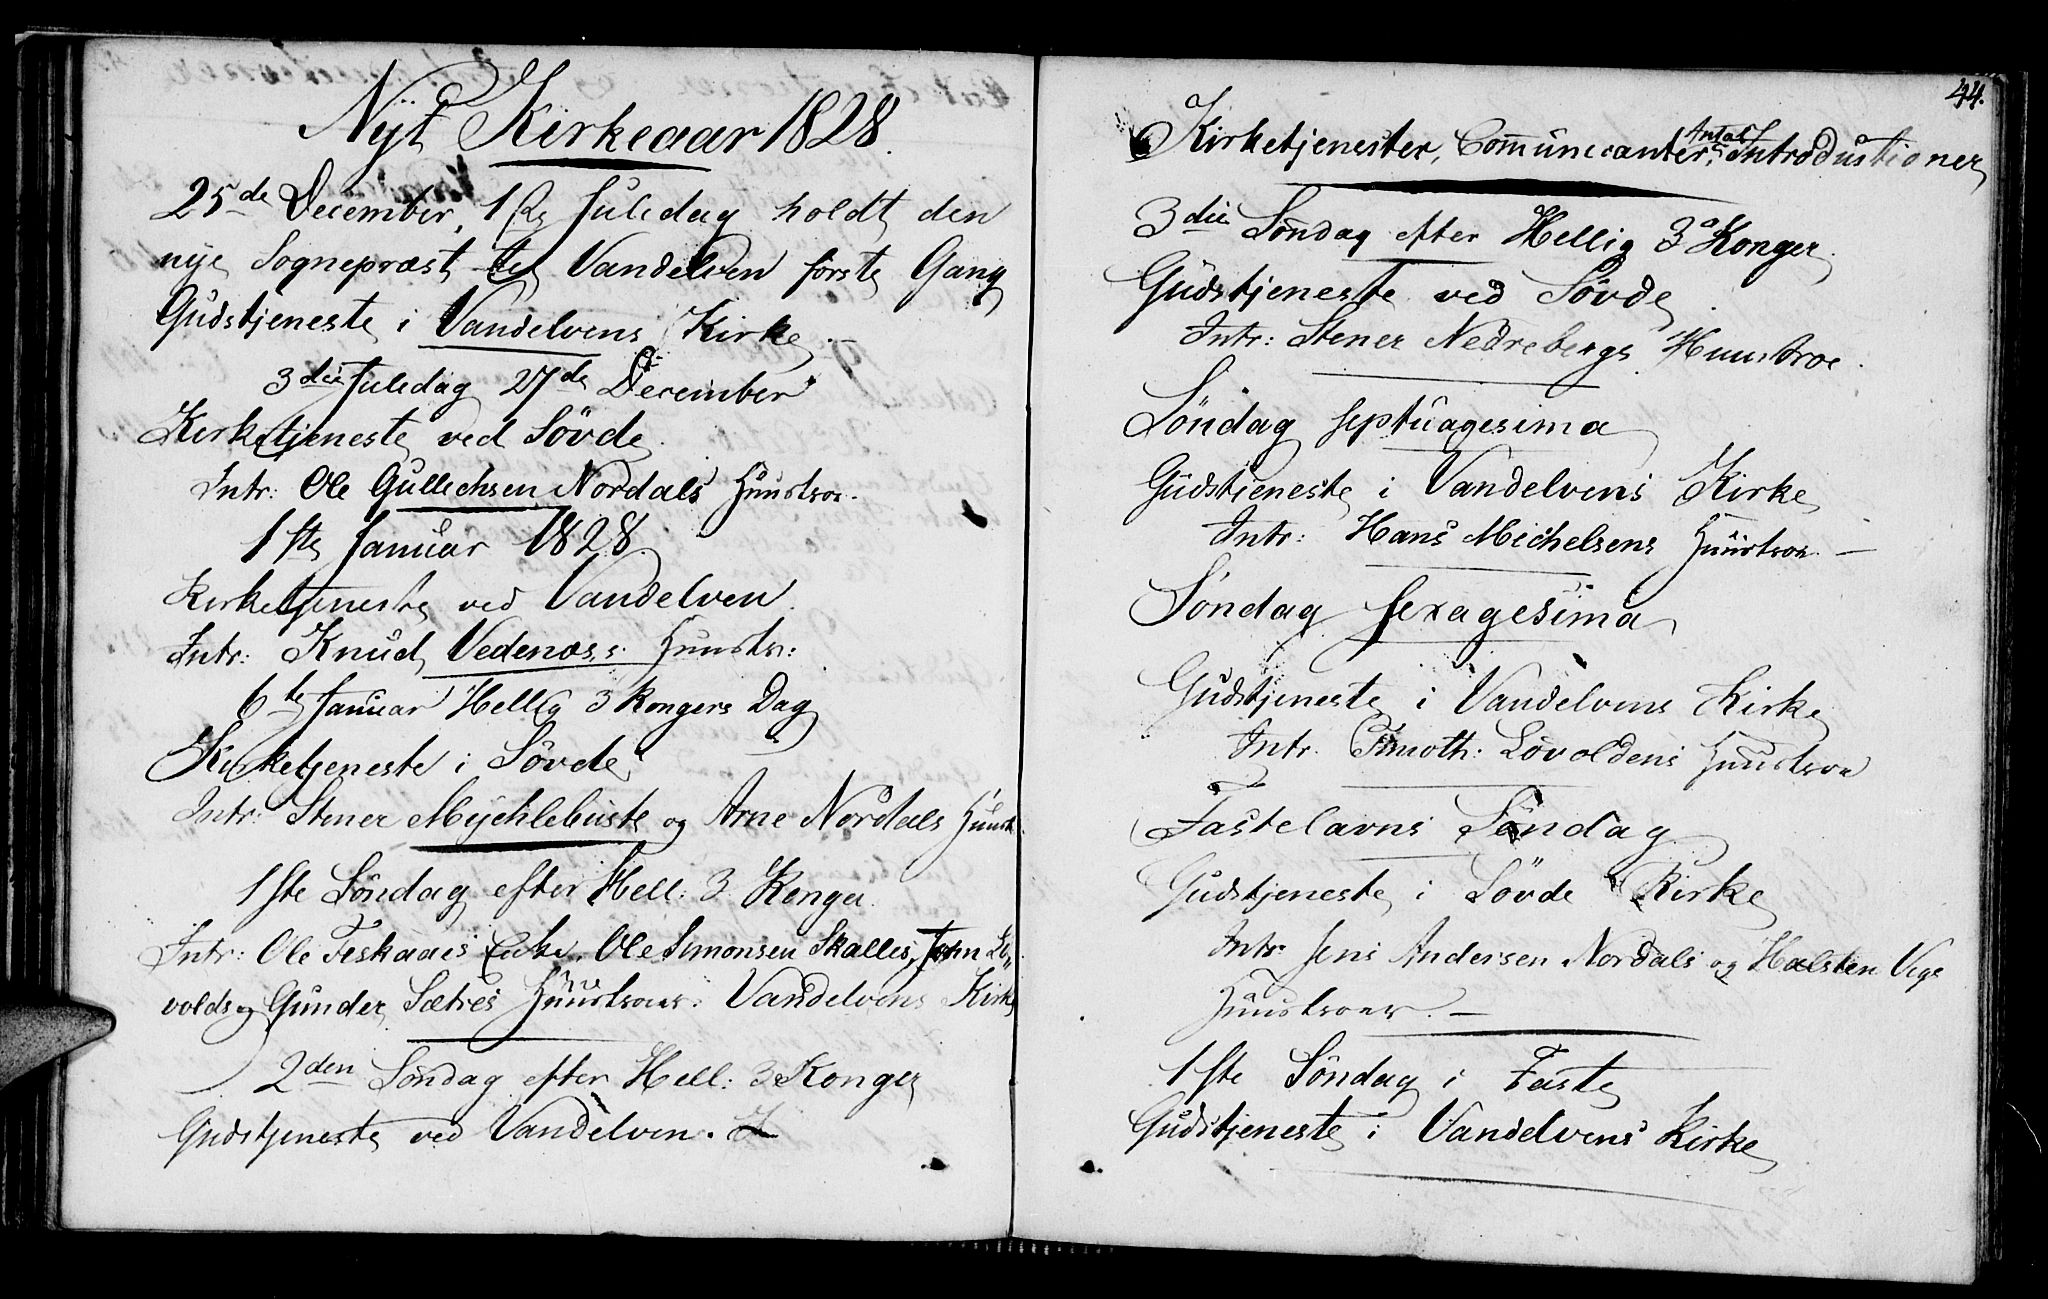 Nÿt Kirkeaar 1828.
25de December, 1ste Juledag holdt den
nye Sognepræst til Vandelven første Gang
Gudstjeneste i Vandelvens Kirke. –
3die Juledag 27de December
Kirketjeneste ved Søvde.
Intr: Ole Gullichsen Nordals Huustroe.
1ste Januar 1828
Kirketjeneste ved Vandelven.
Intr: Knud Vedenæss: Huustr:
6te Januar Hellig 3 Kongers Dag
Kirketjeneste i Søvde
Intr: Stener Myehlebuste og Arne Nordals Huustr.
1ste Søndag efter Hell: 3 Konger.
Intr: Ole Feskaaes Enke, Ole Simonsen Skalles, John Lö„
volds og Gunder Sætres Huustroer: Vandelvens Kirke
2den Søndag efter Hell: 3 Konger
Gudstjeneste ved Vandelven.
44.
Kirketjenester, Communicanters Antal, Introductioner
3die Søndag efter Hellig 3 Konger.
Gudstjeneste ved Søvde.
Intr: Stener Nedrebergs Huustroe.
Søndag Septuagesima
Gudstjeneste i Vandelvens Kirke
Intr: Hans Michelsens Huustroe. –
Søndag Sexagesima
Gudstjeneste i Vandelvens Kirke
Intr. Timoth: Lövoldens Huustroe
Fastelavns Søndag
Gudstjeneste i Sövde Kirke
Intr. Jens Andersen Nordals og Halsten Vigs
Huustroer. –
1ste Søndag i Faste
Gudstjeneste i Vandelvens Kirke